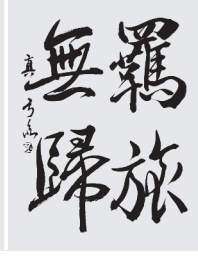 羈旅
無歸